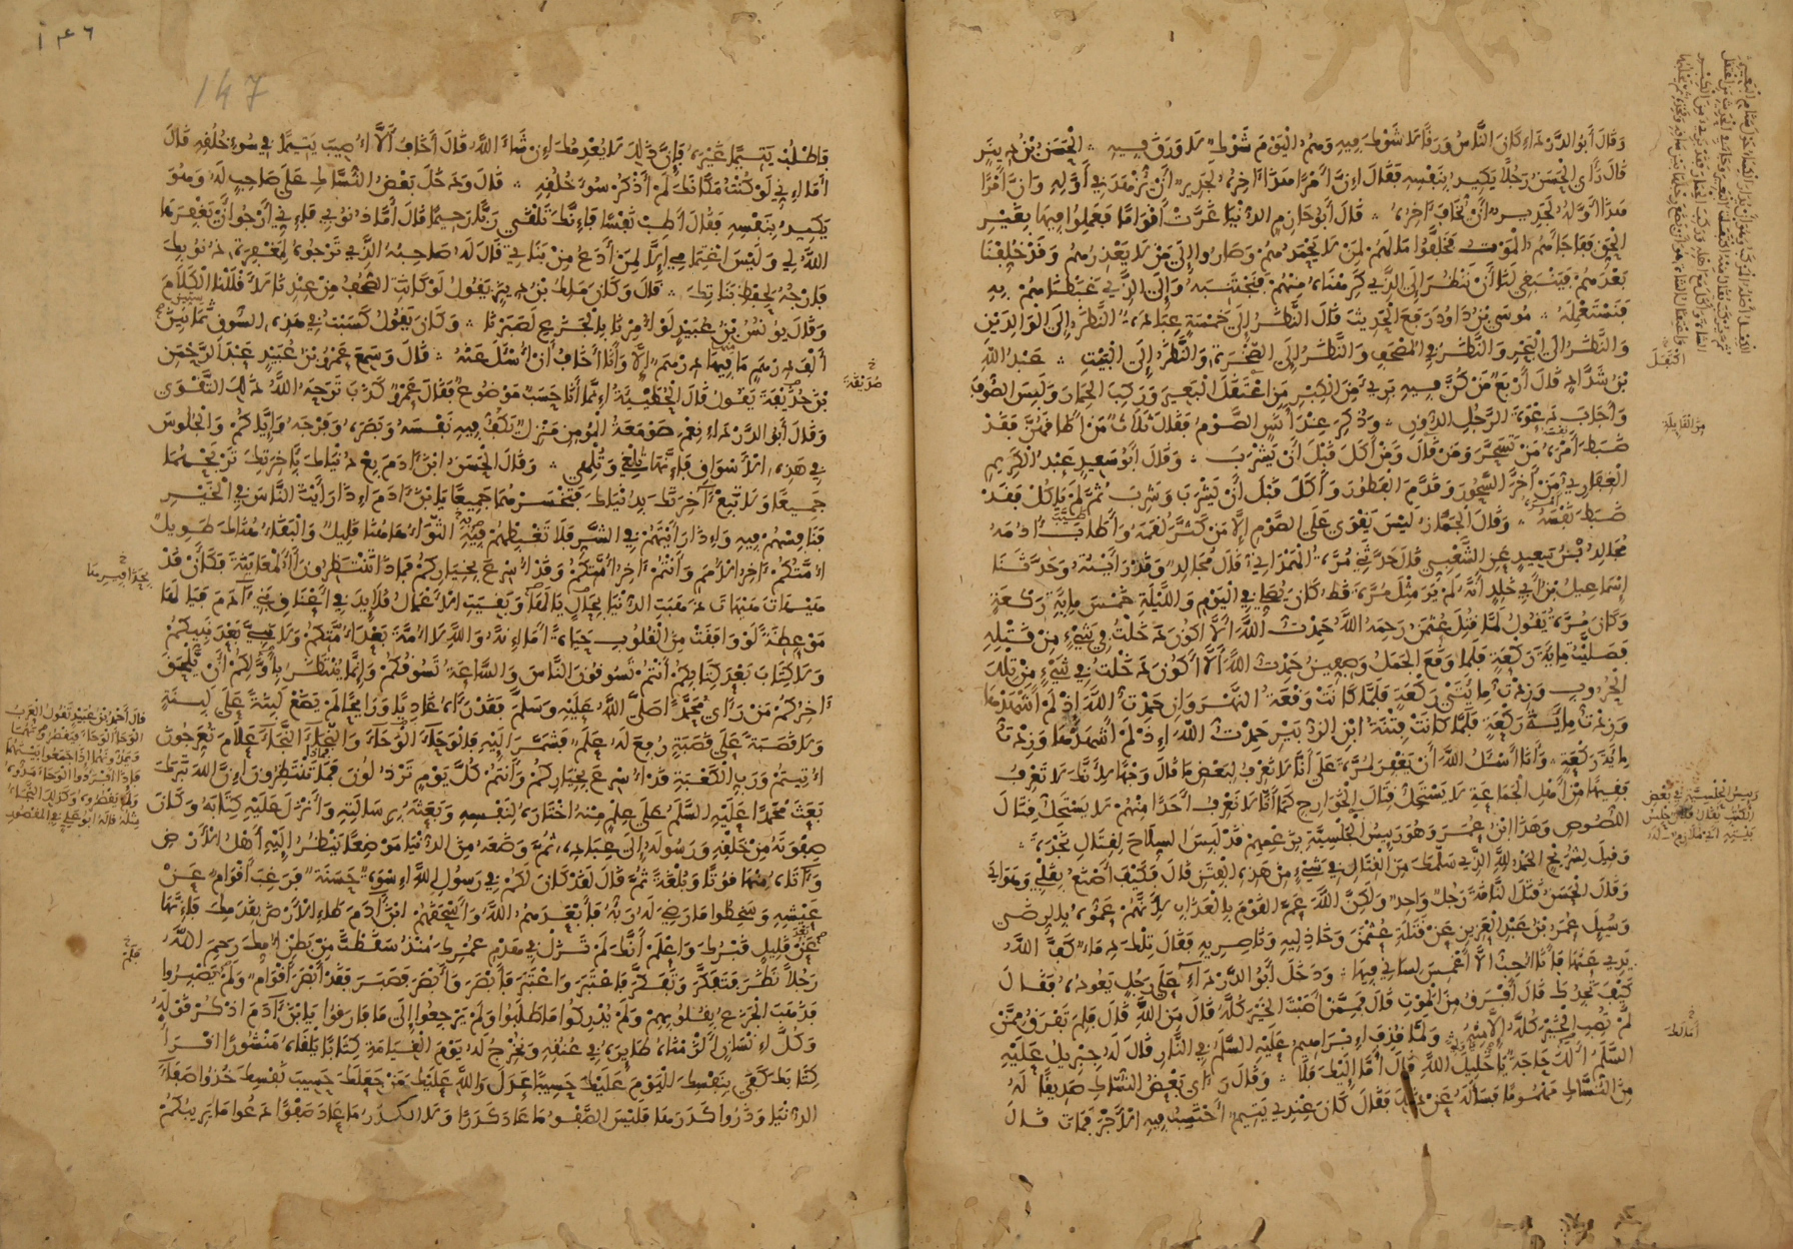 وَقَالَ أَبُو الدَّرْدَاءِ كَانَ النَّاسُ وَرَقًا لَا شَوْكَ فِيهِ وَهُمُ الْيَوْمَ شَوْكٌ لَا وَرَقَ فِيهِ الْحَسَنُ بْنُ دِينَارٍ
قَالَ رَأَى الْحَسَنُ رَجُلًا يَكِيدُ بِنَفْسِهِ فَقَالَ إِنَّ أَمْرًا هَذَا آخِرُهُ لَجَدِيرٌ أَنْ يُزْهَدَ فِي أَوَّلِهِ وَإِنَّ أَمْرًا
هَذَا أَوَّلُهُ لَجَدِيرٌ أَنْ يُخَافَ آخِرُهُ قَالَ أَبُو حَازِمٍ الدُّنْيَا غَرَّتْ أَقْوَامًا فَعَمِلُوا فِيهَا بِغَيْرِ
الْحَقِّ فَفَاجَأَهُمُ الْمَوْتُ فَخَلَّفُوا مَالَهُمْ لِمَنْ لَا يَحْمَدُهُمْ وَصَارُوا إِلَى مَنْ لَا يَعْذِرُهُمْ وَقَدْ خُلِّفْنَا
بَعْدَهُمْ فَيَنْبَغِي لَنَا أَنْ نَنْظُرَ إِلَى الَّذِي كَرِهْنَاهُ مِنْهُمْ فَنَجْتَنِبَهُ وَإِلَى الَّذِي غَبَطْنَاهُمْ بِهِ
فَنَسْتَعْمِلَهُ مُوسَى بْنُ دَاوُدَ رَفَعَ الْحَدِيثَ قَالَ النَّظَرُ إِلَى خَمْسَةٍ عِبَادَةٌ النَّظَرُ إِلَى الْوَالِدَيْنِ
وَالنَّظَرُ إِلَى الْبَحْرِ وَالنَّظَرُ فِي الْمُصْحَفِ وَالنَّظَرُ إِلَى الصَّخْرَةِ وَالنَّظَرُ إِلَى الْبَيْتِ عَبْدُ اللَّهِ
بْنُ شَدَّادٍ قَالَ أَرْبَعٌ مَنْ كُنَّ فِيهِ بَرِئَ مِنَ الْكِبْرِ مَنِ اعْتَقَلَ الْبَعِيرَ وَرَكِبَ الْحِمَارَ وَلَبِسَ الصُّوفَ
وَأَجَابَ دَعْوَةَ الرَّجُلِ الدُّونِ وَذُكِرَ عِنْدَ أَنَسٍ الصَّوْمُ فَقَالَ ثَلَاثٌ مَنْ أَطَاقَهُنَّ فَقَدْ
ضَبَطَ أَمْرَهُ مَنْ تَسَحَّرَ وَمَنْ قَالَ وَمَنْ أَكَلَ قَبْلَ أَنْ يَشْرَبَ وَقَالَ أَبُو سَعِيدٍ عَبْدُ الْكَرِيمِ
الْعُقَابِ مَنْ أَخَّرَ السَّحُورَ وَقَدَّمَ الْفَطُورَ وَأَكَلَ قَبْلَ أَنْ يَشْرَبَ وَشَرِبَ ثُمَّ لَمْ يَأْكُلْ فَقَدْ
ضَبَطَ نَفْسَهُ وَقَالَ الْجَمَّازُ لَيْسَ يَقْوَى عَلَى الصَّوْمِ إِلَّا مَنْ كَبَّرَ لُقَمَهُ وَأَطَابَ أُدْمَهُ
مُجَالِدُ بْنُ سَعِيدٍ عَنِ الشَّعْبِيِّ قَالَ حَدَّثَنِي مُرَّةُ الْهَمْدَانِيُّ قَالَ مُجَالِدٌ وَقَدْ رَأَيْتُهُ وَحَدَّثَنَا
إِسْمَاعِيلُ بْنُ أَبِي خَالِدٍ أَنَّهُ لَمْ يَرَ مِثْلَ مُرَّةَ قَطُّ كَانَ يُصَلِّي فِي الْيَوْمِ وَاللَّيْلَةِ خَمْسَ مِائَةِ رَكْعَةٍ
وَكَانَ مُرَّةُ يَقُولُ لَمَّا قُتِلَ عُثْمَنُ رَحِمَهُ اللَّهُ حَمِدْتُ اللَّهَ أَلَّا أَكُونَ دَخَلْتُ فِي شَيْءٍ مِنْ قَتْلِهِ
فَصَلَّيْتُ مِائَةَ رَكْعَةٍ فَلَمَّا وَقَعَ الْجَمَلُ وَصِفِّينُ حَمِدْتُ اللَّهَ أَلَّا أَكُونَ دَخَلْتُ فِي شَيْءٍ مِنْ تِلْكَ
الْحُرُوبِ وَزِدْتُ مِائَتَيْ رَكْعَةٍ فَلَمَّا كَانَتْ وَقْعَةُ النَّهْرَوَانِ حَمِدْتُ اللَّهَ إِذْ لَمْ أَشْهَدْهَا
وَزِدْتُ مِائَةَ رَكْعَةٍ فَلَمَّا كَانَتْ فِتْنَةُ ابْنِ الزُّبَيْرِ حَمِدْتُ اللَّهَ إِذْ لَمْ أَشْهَدْهَا وَزِدْتُ
مِائَةَ رَكْعَةٍ وَأَنَا أَسْئَلُ اللَّهَ أَنْ يَغْفِرَ لِمُرَّةَ عَلَى أَنَّا لَا نَعْرِفُ لِبَعْضِ مَا قَالَ وَجْهًا لِأَنَّكَ لَا تَعْرِفُ
فَقِيهًا مِنْ أَهْلِ الْجَمَاعَةِ لَا يَسْتَحِلُّ قِتَالَ الْخَوَارِجِ كَمَا أَنَّا لَا نَعْرِفُ أَحَدًا مِنْهُمْ لَا يَسْتَحِلُّ قِتَالَ
اللُّصُوصِ وَهَذَا ابْنُ عُمَرَ وَهُوَ رَئِيسُ الْحَلْسِيَّةِ بِزَعْمِهِمْ قَدْ لَبِسَ السِّلَاحَ لِقِتَالِ نَجْدَةَ
وَقِيلَ لِشُرَيْحٍ الْحَمْدُ لِلَّهِ الَّذِي سَلَّمَكَ مِنَ الْقِتَالِ فِي شَيْءٍ مِنْ هَذِهِ الْفِتَنِ قَالَ فَكَيْفَ أَصْنَعُ بِقَلْبِي وَهَوَايَ
وَقَالَ الْحَسَنُ قَتَلَ النَّاقَةَ رَجُلٌ وَاحِدٌ وَلَكِنَّ اللَّهَ عَمَّ الْقَوْمَ بِالْعَذَابِ لِأَنَّهُمْ عَمُّوهُ بِالرِّضَى
وَسُئِلَ عُمَرُ بْنُ عَبْدِ الْعَزِيزِ عَنْ قَتَلَةِ عُثْمَنَ وَخَاذِلِيهِ وَنَاصِرِيهِ فَقَالَ تِلْكَ دِمَاءٌ كَفَّ اللَّهُ
يَدِي عَنْهَا فَأَنَا أُحِبُّ أَلَّا أَغْمِسَ لِسَانِي فِيهَا وَدَخَلَ أَبُو الدَّرْدَاءِ عَلَى رَجُلٍ يَعُودُهُ فَقَالَ
كَيْفَ تَجِدُكَ قَالَ أَفْرَقُ مِنَ الْمَوْتِ قَالَ فَمِمَّنْ أَصَبْتَ الْخَيْرَ كُلَّهُ قَالَ مِنَ اللَّهِ قَالَ فَلِمَ تَفْرَقُ مِمَّنْ
لَمْ تُصِبِ الْخَيْرَ كُلَّهُ إِلَّا مِنْهُ وَلَمَّا قُذِفَ إِبْرَاهِيمُ عَلَيْهِ السَّلَمُ فِي النَّارِ قَالَ لَهُ جِبْرِيلُ عَلَيْهِ
السَّلَمُ أَلَكَ حَاجَةٌ يَا خَلِيلَ اللَّهِ قَالَ أَمَّا إِلَيْكَ فَلَا وَقَالَ وَرَأَى بَعْضُ النُّسَّاكِ صَدِيقًا لَهُ
مِنَ النُّسَّاكِ مَهْمُومًا فَسَأَلَهُ عَنْ ذَلِكَ فَقَالَ كَانَ عِنْدِي يَتِيمٌ أَحْتَسِبُ فِيهِ الْأَجْرَ فَمَاتَ قَالَ
رئيس الحلسية في بعض
147
فَاطْلُبْ يَتِيمًا غَيْرَهُ فَإِنَّ ذَلِكَ لَا يُعْدِمُكَ إِنْ شَاءَ اللَّهُ قَالَ أَخَافُ أَلَّا أُصِيبَ يَتِيمًا فِي سُوءِ خُلُقِهِ قَالَ
أَمَا إِنِّي لَوْ كُنْتُ مَكَانَكَ لَمْ أَذْكُرْ سُوءَ خُلُقِهِ قَالَ وَدَخَلَ بَعْضُ النُّسَّاكِ عَلَى صَاحِبٍ لَهُ وَهُوَ
يَكِيدُ بِنَفْسِهِ فَقَالَ أَطِبْ نَفْسًا فَإِنَّكَ تَلْقَى رَبًّا رَحِيمًا قَالَ أَمَّا ذُنُوبِي فَإِنِّي أَرْجُوا أَنْ يَغْفِرَهَا
اللَّهُ لِي وَلَيْسَ اغْتِمَامِي إِلَّا لِمَنْ أَدَعُ مِنْ بَنَاتِي قَالَ لَهُ صَاحِبُهُ الَّذِي تَرْجُوهُ لِمَغْفِرَةِ ذُنُوبِكَ
فَارْجُهُ لِحِفْظِ بَنَاتِكَ قَالَ وَكَانَ مَالِكُ بْنُ دِينَارٍ يَقُولُ لَوْ كَانَتِ الصُّحُفُ مِنْ عِنْدِنَا لَأَقْلَلْنَا الْكَلَامَ
وَقَالَ يُونُسُ بْنُ عُبَيْدٍ لَوْ أُمِرْنَا بِالْجَزَعِ لَصَبَرْنَا وَكَانَ يَقُولُ كَسَبْتُ فِي هَذِهِ السُّوقِ ثَمَانِينَ
أَلْفَ دِرْهَمٍ مَا فِيهَا دِرْهَمٌ إِلَّا وَأَنَا أَخَافُ أَنْ أُسْئَلَ عَنْهُ قَالَ وَسَمِعَ عَمْرُو بْنُ عُبَيْدٍ عَبْدَ الرَّحْمَنِ
بْنَ حُذَيْفَةَ يَقُولُ قَالَ الْحُطَيْئَةُ إِنَّمَا أَنَا حَسَبٌ مَوْضُوعٌ فَقَالَ عَمْرٌو كَذَبَ تَرَّحَهُ اللَّهُ ذَلِكَ التَّقْوَى
وَقَالَ أَبُو الدَّرْدَاءِ نِعْمَ صَوْمَعَةُ الْمُؤْمِنِ مَنْزِلٌ يَكُفُّ فِيهِ نَفْسَهُ وَبَصَرَهُ وَفَرْجَهُ وَإِيَّاكُمْ وَالْجُلُوسَ
فِي هَذِهِ الْأَسْوَاقِ فَإِنَّهَا تُلْغِي وَتُلْهِي وَقَالَ الْحَسَنُ ابْنَ آدَمَ بِعْ دُنْيَاكَ بِآخِرَتِكَ تَرْبَحْهُمَا
جَمِيعًا وَلَا تَبِعْ آخِرَتَكَ بِدُنْيَاكَ فَتَخْسَرَهُمَا جَمِيعًا يَا ابْنَ آدَمَ إِذَا رَأَيْتَ النَّاسَ فِي الْخَيْرِ
فَنَافِسْهُمْ فِيهِ وَإِذَا رَأَيْتَهُمْ فِي الشَّرِّ فَلَا تَغْبِطْهُمْ فِيهِ الثَّوَاءُ هَاهُنَا قَلِيلٌ وَالْبَقَاءُ هُنَاكَ طَوِيلٌ
أُمَّتُكُمْ آخِرُ الْأُمَمِ وَأَنْتُمْ آخِرُ أُمَّتِكُمْ وَقَدْ أُسْرِعَ بِخِيَارِكُمْ فَمَاذَا تَنْتَظِرُونَ أَلْمُعَايَنَةَ فَكَأَنْ قَدْ
هَيْهَاتَ هَيْهَاتَ ذَهَبَتِ الدُّنْيَا بِحَالِ بَالِهَا وَبَقِيَتِ الْأَعْمَالُ قَلَائِدَ فِي أَعْنَاقِ بَنِي آدَمَ فَيَا لَهَا
مَوْعِظَةً لَوْ وَافَقَتْ مِنَ الْقُلُوبِ حَيَاةً أَمَا إِنَّهُ وَاللَّهِ لَا أُمَّةَ بَعْدَ أُمَّتِكُمْ وَلَا نَبِيَّ بَعْدَ نَبِيِّكُمْ
وَلَا كِتَابَ بَعْدَ كِتَابِكُمْ أَنْتُمْ تَسُوقُونَ النَّاسَ وَالسَّاعَةُ تَسُوقُكُمْ وَإِنَّمَا يُنْتَظَرُ بِأَوَّلِكُمْ أَنْ يَلْحَقَ
آخِرُكُمْ مَنْ رَأَى مُحَمَّدًا صَلَّى اللَّهُ عَلَيْهِ وَسَلَّمَ فَقَدْ رَآهُ غَادِيًا وَرَائِحًا لَمْ يَضَعْ لَبِنَةً عَلَى لَبِنَةٍ
وَلَا قَصَبَةً عَلَى قَصَبَةٍ رُفِعَ لَهُ عَلَمٌ فَشَمَّرَ إِلَيْهِ فَالْوَحَاءَ الْوَحَاءَ وَالنَّجَاءَ النَّجَاءَ عَلَامَ تَعْرُجُونَ
أُتِيتُمْ وَرَبِّ الْكَعْبَةِ قَدْ أُسْرِعَ بِخِيَارِكُمْ وَأَنْتُمْ كُلَّ يَوْمٍ تَرْذُلُونَ فَمَا تَنْتَظِرُونَ إِنَّ اللَّهَ تَبَارَكَ
بَعَثَ مُحَمَّدًا عَلَيْهِ السَّلَمُ عَلَى عِلْمٍ مِنْهُ اخْتَارَهُ لِنَفْسِهِ وَبَعَثَهُ بِرِسَالَتِهِ وَأَنْزَلَ عَلَيْهِ كِتَابَهُ وَكَانَ
صَفْوَتَهُ مِنْ خَلْقِهِ وَرَسُولَهُ إِلَى عِبَادِهِ ثُمَّ وَضَعَهُ مِنَ الدُّنْيَا مَوْضِعًا يَنْظُرُ إِلَيْهِ أَهْلُ الْأَرْضِ
وَآتَاهُ مِنْهَا قُوتًا وَبُلْغَةً ثُمَّ قَالَ لَقَدْ كَانَ لَكُمْ فِي رَسُولِ اللَّهِ إِسْوَةٌ حَسَنَةٌ فَرَغِبَ أَقْوَامٌ عَنْ
عَيْشِهِ وَسَخِطُوا مَا رَضِيَ لَهُ رَبُّهُ فَأَبْعَدَهُمُ اللَّهُ وَأَسْحَقَهُمْ ابْنَ آدَمَ طَإِ الْأَرْضَ بِقَدَمِكَ فَإِنَّهَا
عَنْ قَلِيلٍ قَبْرُكَ وَاعْلَمْ أَنَّكَ لَمْ تَزَلْ فِي هَدْمِ عُمُرِكَ مُنْذُ سَقَطْتَ مِنْ بَطْنِ أُمِّكَ رَحِمَ اللَّهُ
رَجُلًا نَظَرَ فَتَفَكَّرَ وَتَفَكَّرَ فَاعْتَبَرَ وَاعْتَبَرَ فَأَبْصَرَ وَأَبْصَرَ فَصَبَرَ فَقَدْ أَبْصَرَ أَقْوَامٌ وَلَمْ يَصْبِرُوا
فَذَهَبَ الْجَزَعُ بِقُلُوبِهِمْ وَلَمْ يُدْرِكُوا مَا طَلَبُوا وَلَمْ يَرْجِعُوا إِلَى مَا فَارَقُوا يَا ابْنَ آدَمَ اذْكُرْ قَوْلَهُ
وَكُلَّ إِنْسَانٍ أَلْزَمْنَاهُ طَائِرَهُ فِي عُنُقِهِ وَنُخْرِجُ لَهُ يَوْمَ الْقِيَامَةِ كِتَابًا يَلْقَاهُ مَنْشُورًا اقْرَأْ
كِتَابَكَ كَفَى بِنَفْسِكَ الْيَوْمَ عَلَيْكَ حَسِيبًا عَدَلَ وَاللَّهِ عَلَيْكَ مَنْ جَعَلَكَ حَسِيبَ نَفْسِكَ خُذُوا صَفَاءَ
الدُّنْيَا وَذَرُوا كَدَرَهَا فَلَيْسَ الصَّفْوُ مَا عَادَ كَدَرًا وَلَا الْكَدَرُ مَا عَادَ صَفْوًا دَعُوا مَا يَرِيبُكُمْ